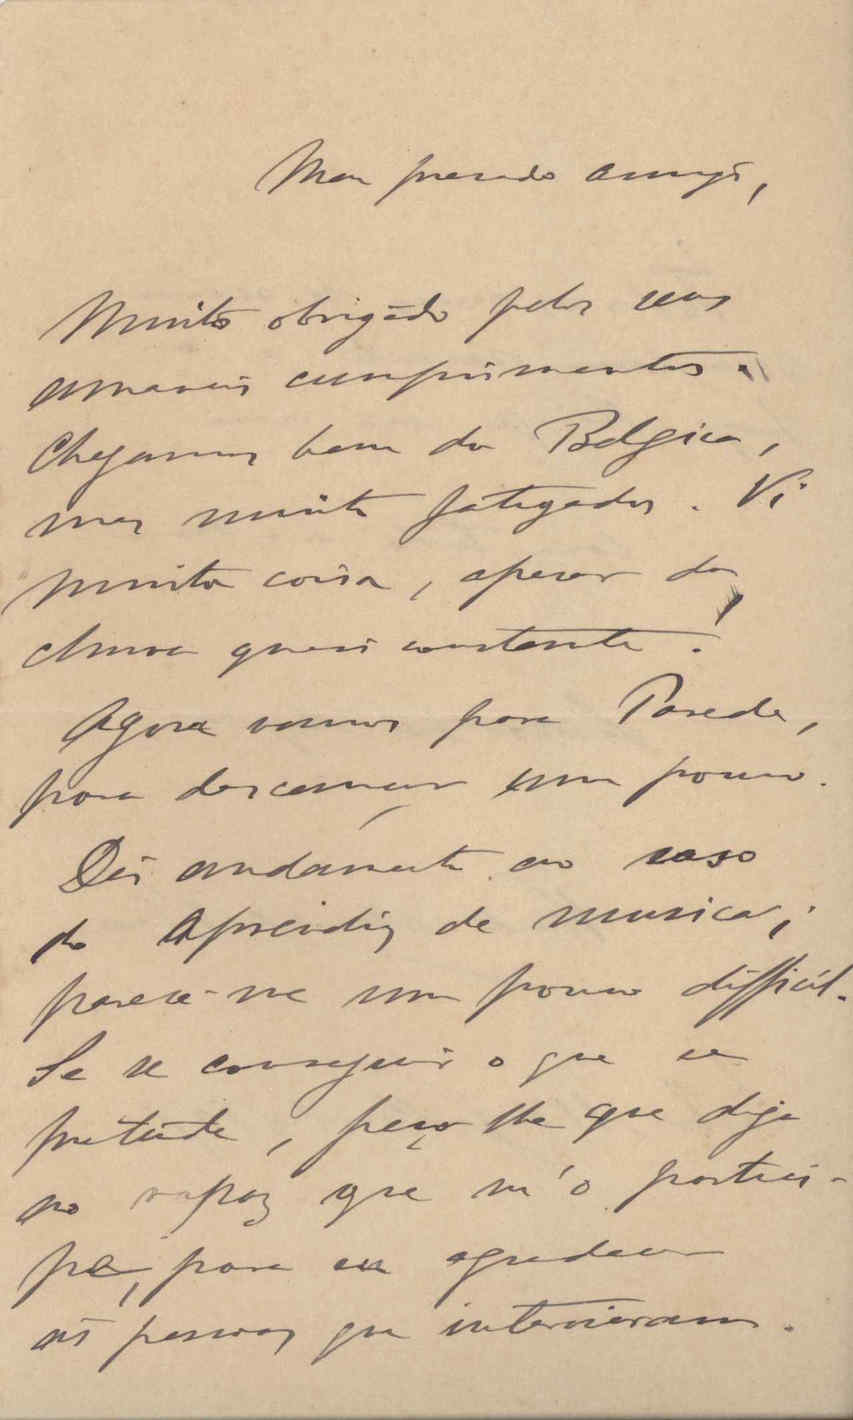 Meu presado amigo,
Muito obrigado pelos seus
amaveis cumprimentos.
Chegamos bem da Belgica,
mas muito fatigados. Vi
muita coisa, apesar da
chuva quasi constante.
Agora vamos para Parede,
para descançar um pouco.
Dei andamento ao caso
do aprendiz de musica;
parece-me um pouco difficil.
Se se conseguir o que se
pretende, peço-lhe que diga
ao rapaz que m'o partici-
pe, para eu agradecer
ás pessoas que intervieram.